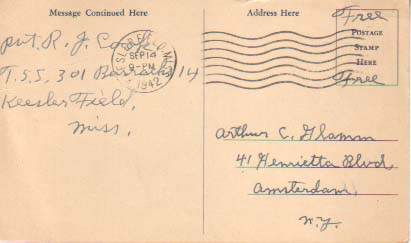 Message Continued Here
Pvt. R. J. Cooke
T.S.S. 301 Barracks 14
Keesler Field,
Miss.
KEESLER FIELD, MISS.
SEP 14
9-PM
1942
Address Here
Free
POSTAGE
STAMP
HERE
Free
Arthur C. Glamm
41 Henrietta Blvd,
Amsterdam,
N.Y.